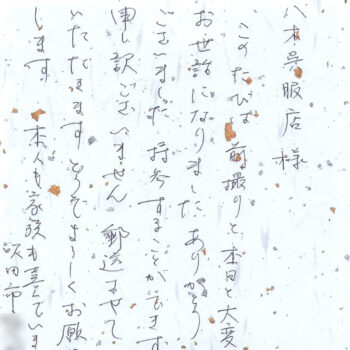 八木呉服店様
このたびは前撮りと、本日と大変
お世話になりました ありがとう
ございました 持参することができず
申し訳ございません 郵送させて
いただきます どうぞよろしくお願
します 本人も家族も喜んでいま
吹田市